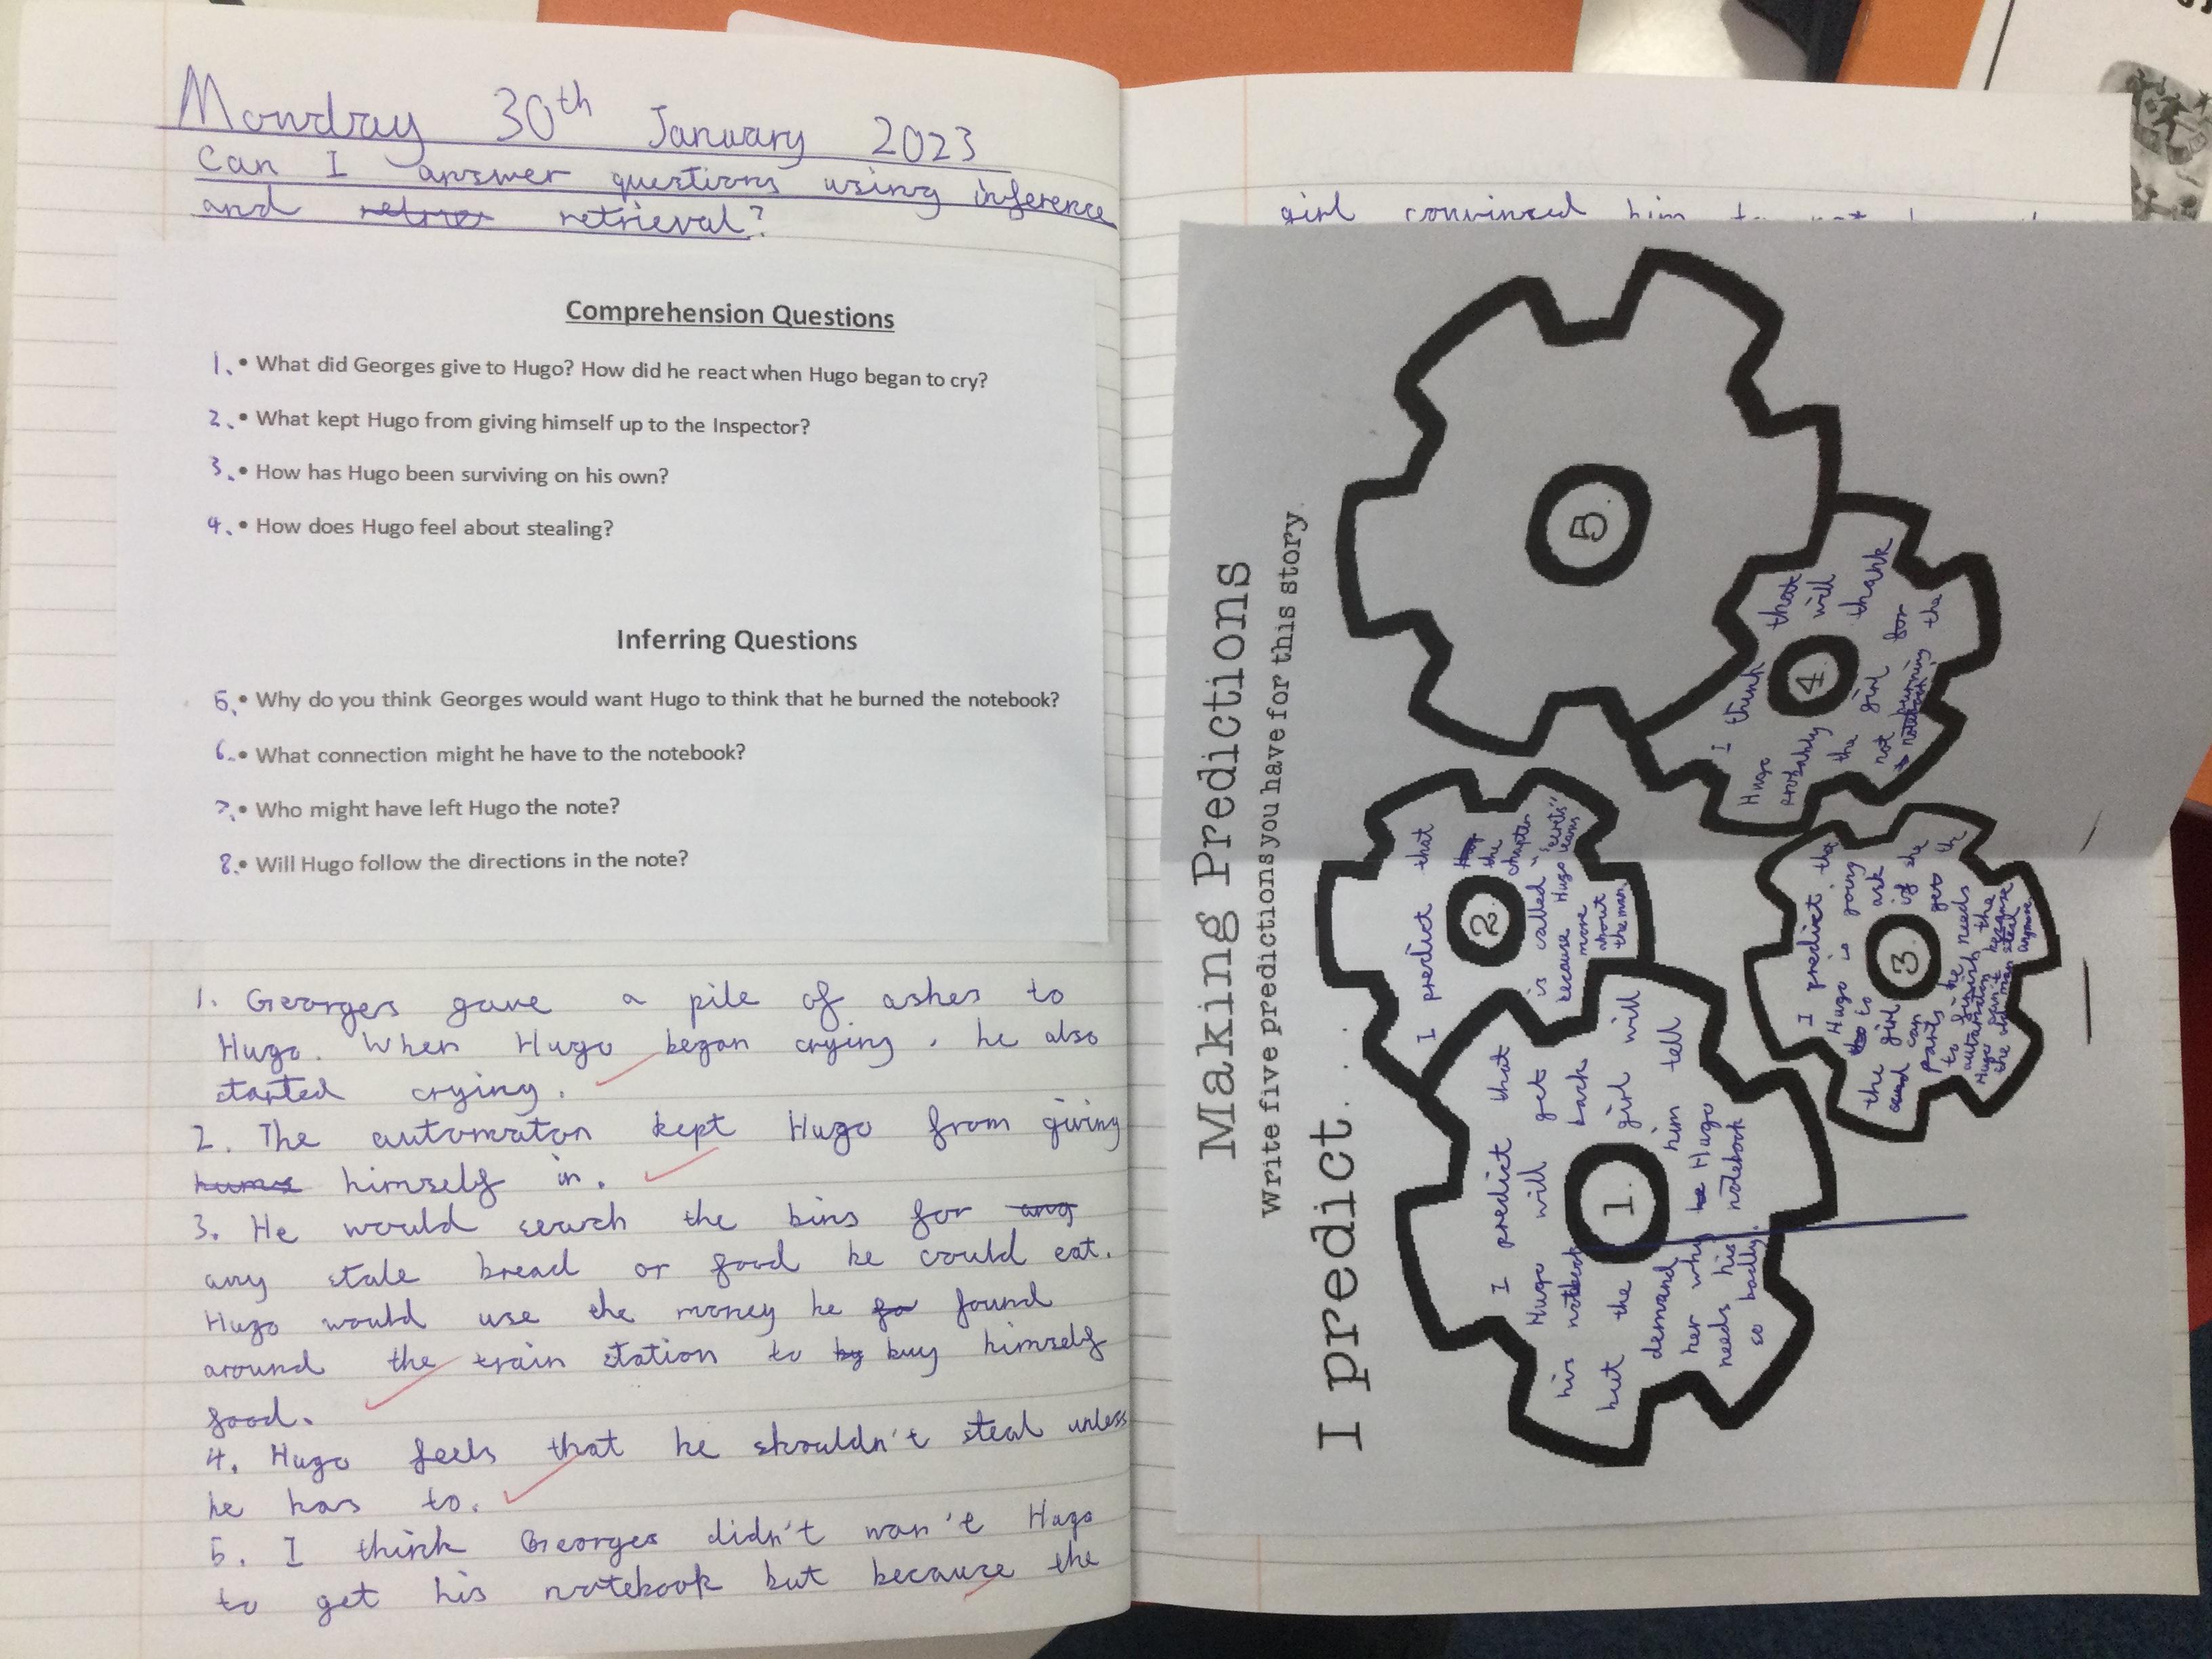 Monday 30th January 2023
Can I answer questions using inference
and retrieval?
Comprehension Questions
1. • What did Georges give to Hugo? How did he react when Hugo began to cry?
2. • What kept Hugo from giving himself up to the Inspector?
3. • How has Hugo been surviving on his own?
4. • How does Hugo feel about stealing?
Inferring Questions
5. • Why do you think Georges would want Hugo to think that he burned the notebook?
6. • What connection might he have to the notebook?
7. • Who might have left Hugo the note?
8. • Will Hugo follow the directions in the note?
1. Georges gave a pile of ashes to
Hugo. When Hugo began crying, he also
started crying.
2. The automaton kept Hugo from giving
himself in.
3. He would search the bins for any
any stale bread or food he could eat.
Hugo would use the money he fo found
around the train station to by buy himself
food.
4. Hugo feels that he shouldn't steal unless
he has to.
5. I think Georges didn't wan't Hugo
to get his notebook but because the
girl convinced him to not
Making Predictions
Write five predictions you have for this story.
I predict...
1.
I predict that
Hugo will get
his notebook back
but the girl will
demand him tell
her why he Hugo
needs his notebook
so badly.
2.
I predict that
the
chapter
is called "
because Hugo learns
more
about
the man
3.
I predict tha
Hugo is going
to ask
the girl if she
can get th
parts he needs
to finish the
automaton because
Hugo can't steal
the old man anymore
4.
I think that
Hugo will
probably thank
the girl for
not burning the
notebook
5.